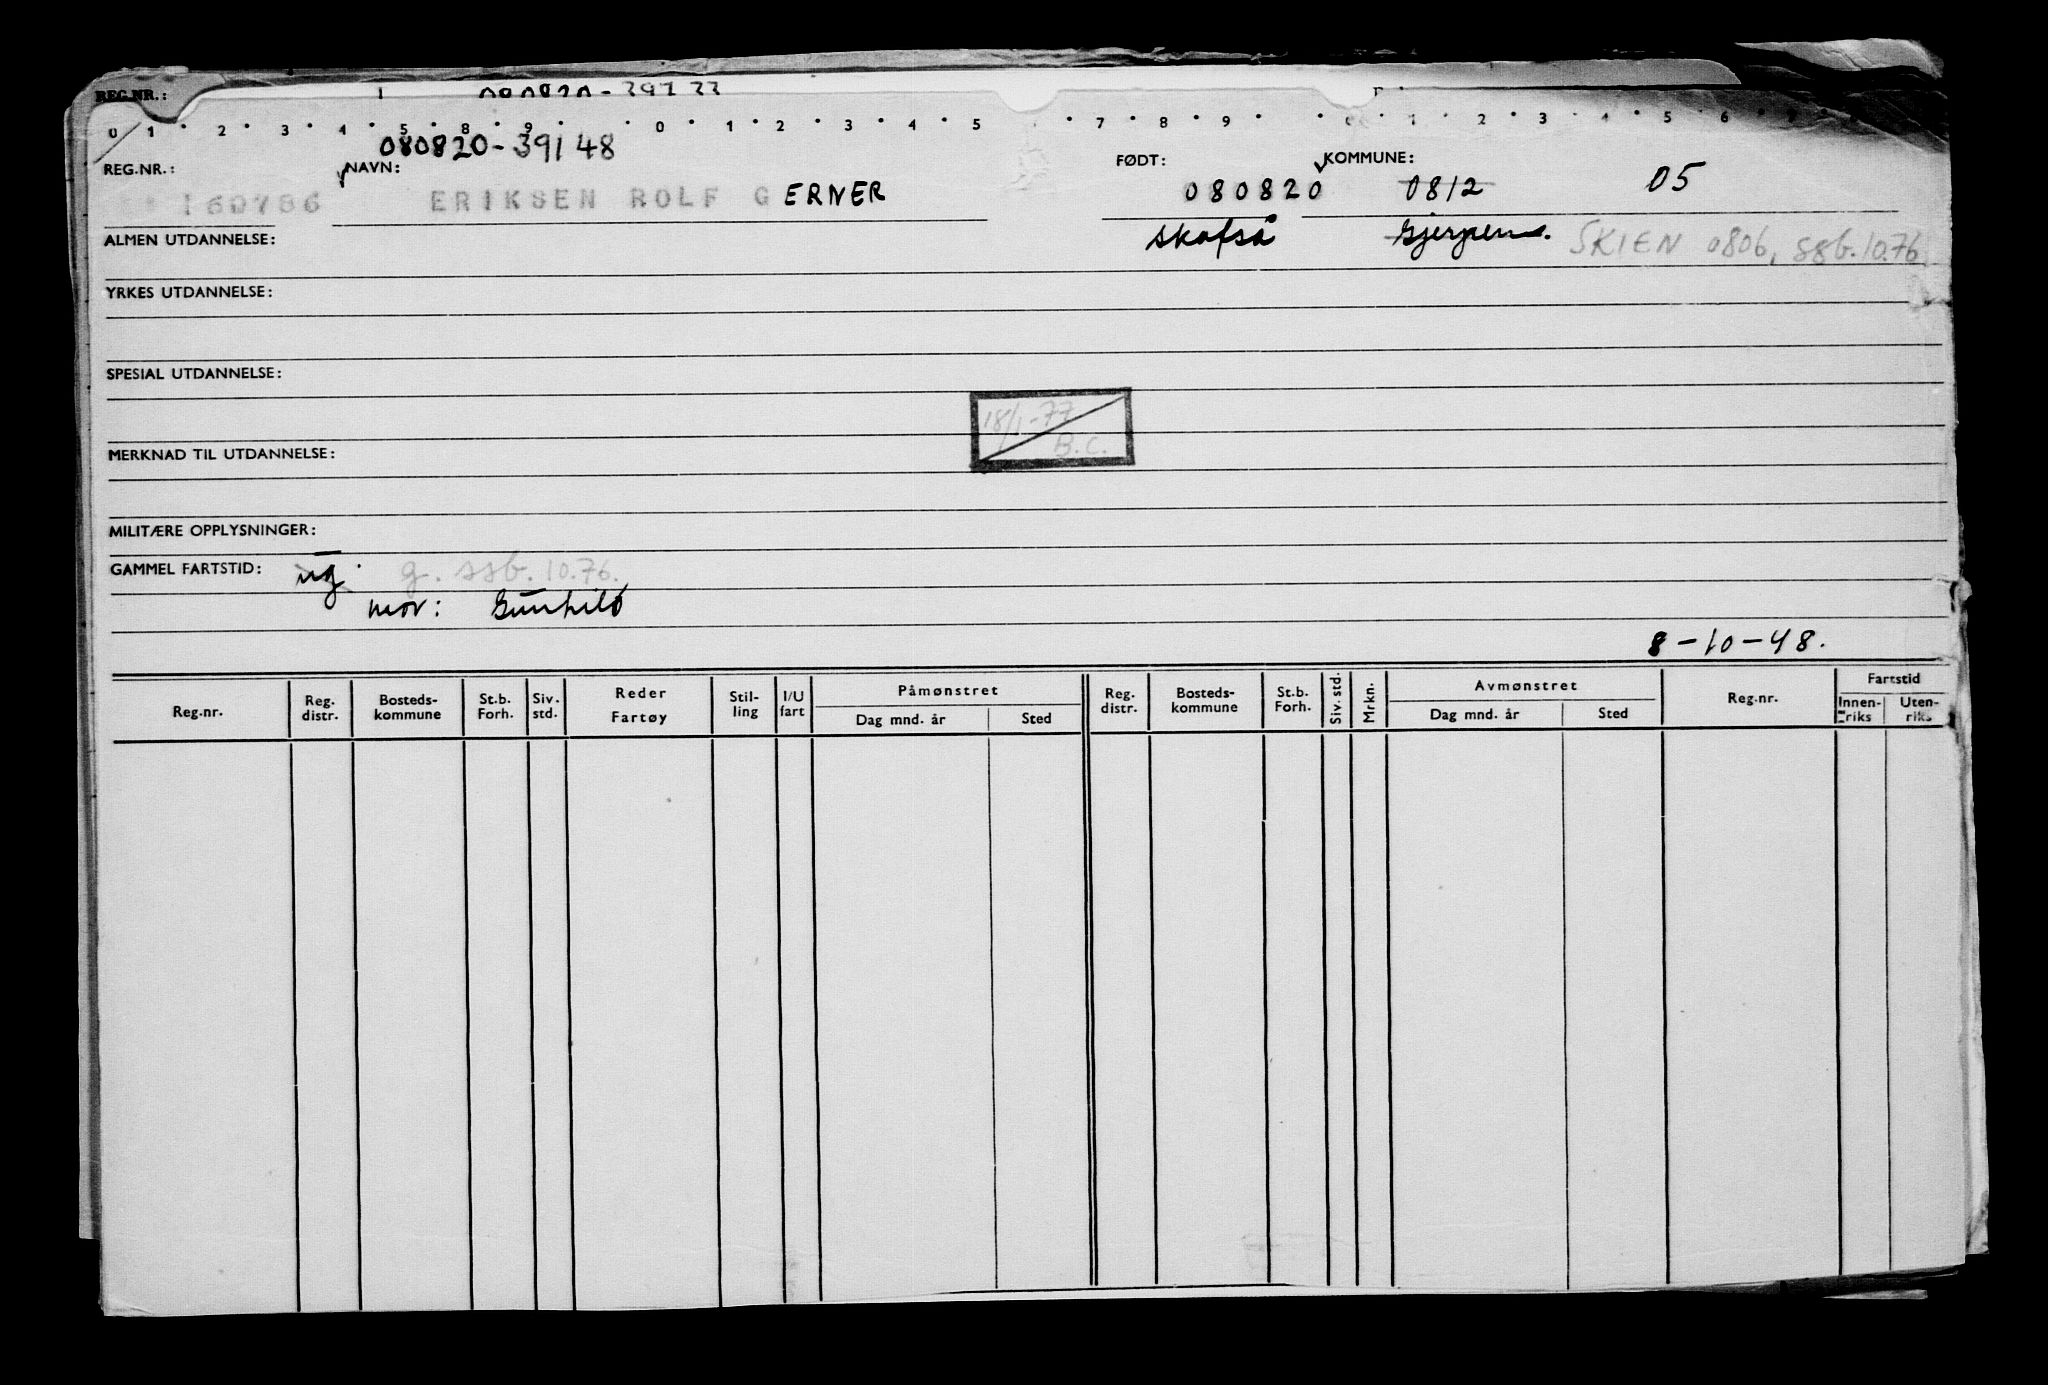 REG.NR.:
0 1 2 3 4 5 8 9 0 1 2 3 4 5 7 8 9 1 2 3 4 5 6
080820-39148
REG.NR.: NAVN: FØDT: KOMMUNE:
160786 ERIKSEN ROLF GERNER 080820 0812 05
ALMEN UTDANNELSE: Skafså Gjerpen. SKIEN 0806, SSb. 10.76
YRKES UTDANNELSE:
SPESIAL UTDANNELSE:
18/1-77
B.C.
MERKNAD TIL UTDANNELSE:
MILITÆRE OPPLYSNINGER:
GAMMEL FARTSTID: ug. g. ssb. 10.76.
mor: Gunhild
8-10-48.
Reg.nr. Reg. distr. Bosteds-kommune St.b. Forh. Siv. std. Reder Fartøy Stil-ling I/U fart Påmønstret Dag mnd. år Sted Reg. distr. Bosteds-kommune St.b. Forh. Siv. std. Mrkn. Avmønstret Dag mnd. år Sted Reg.nr. Fartstid Innen-riks Uten-riks